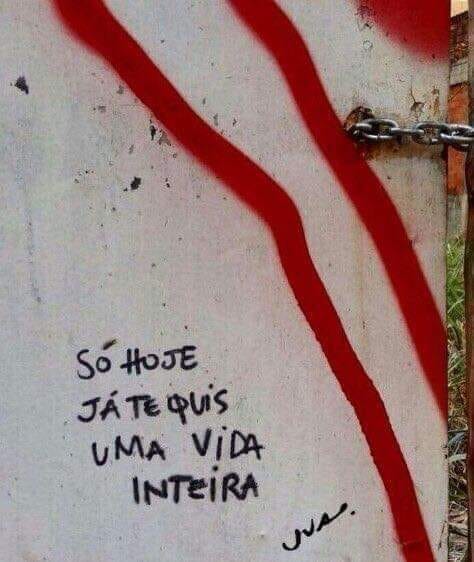 SÓ HOJE
JÁ TE QUIS
UMA VIDA
INTEIRA